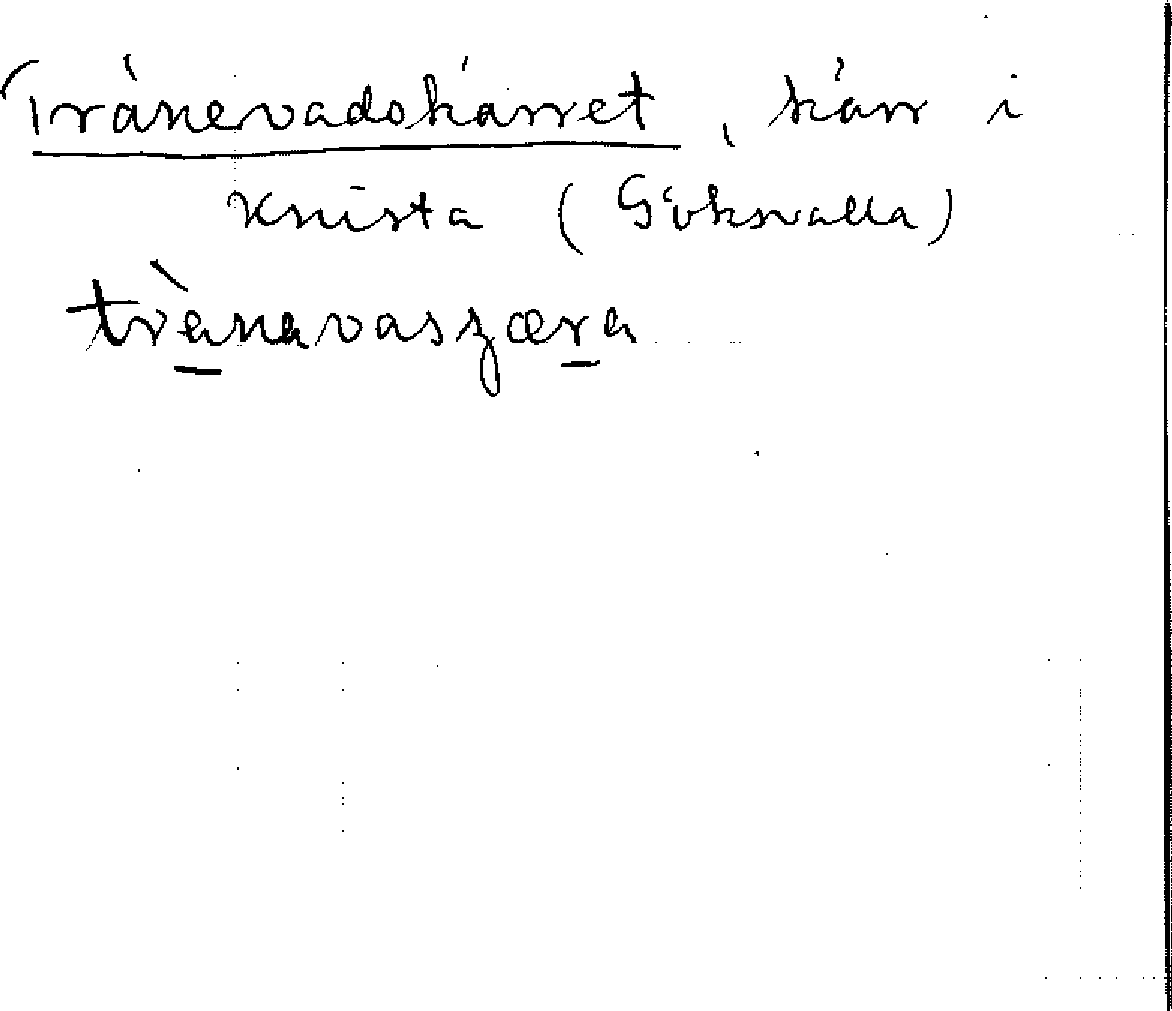 Tränevadskärret, kärr i
Knista (Göksvalla)
trànavasʒæra